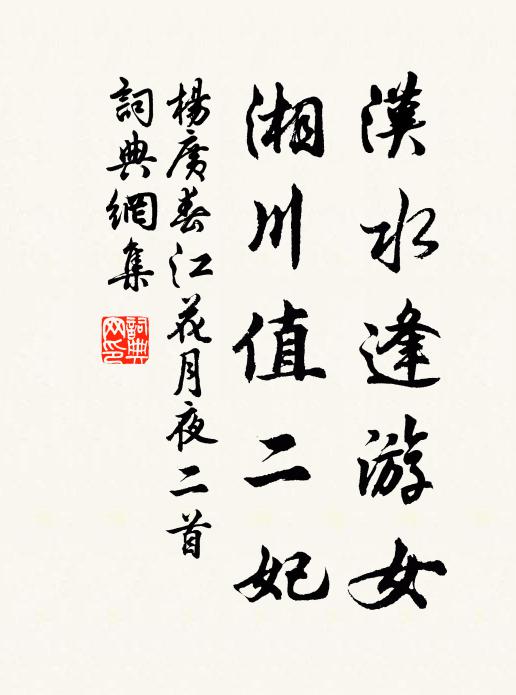 漢水逢游女
湘川值二妃
楊廣春江花月夜二首
詞典網集
詞典网印